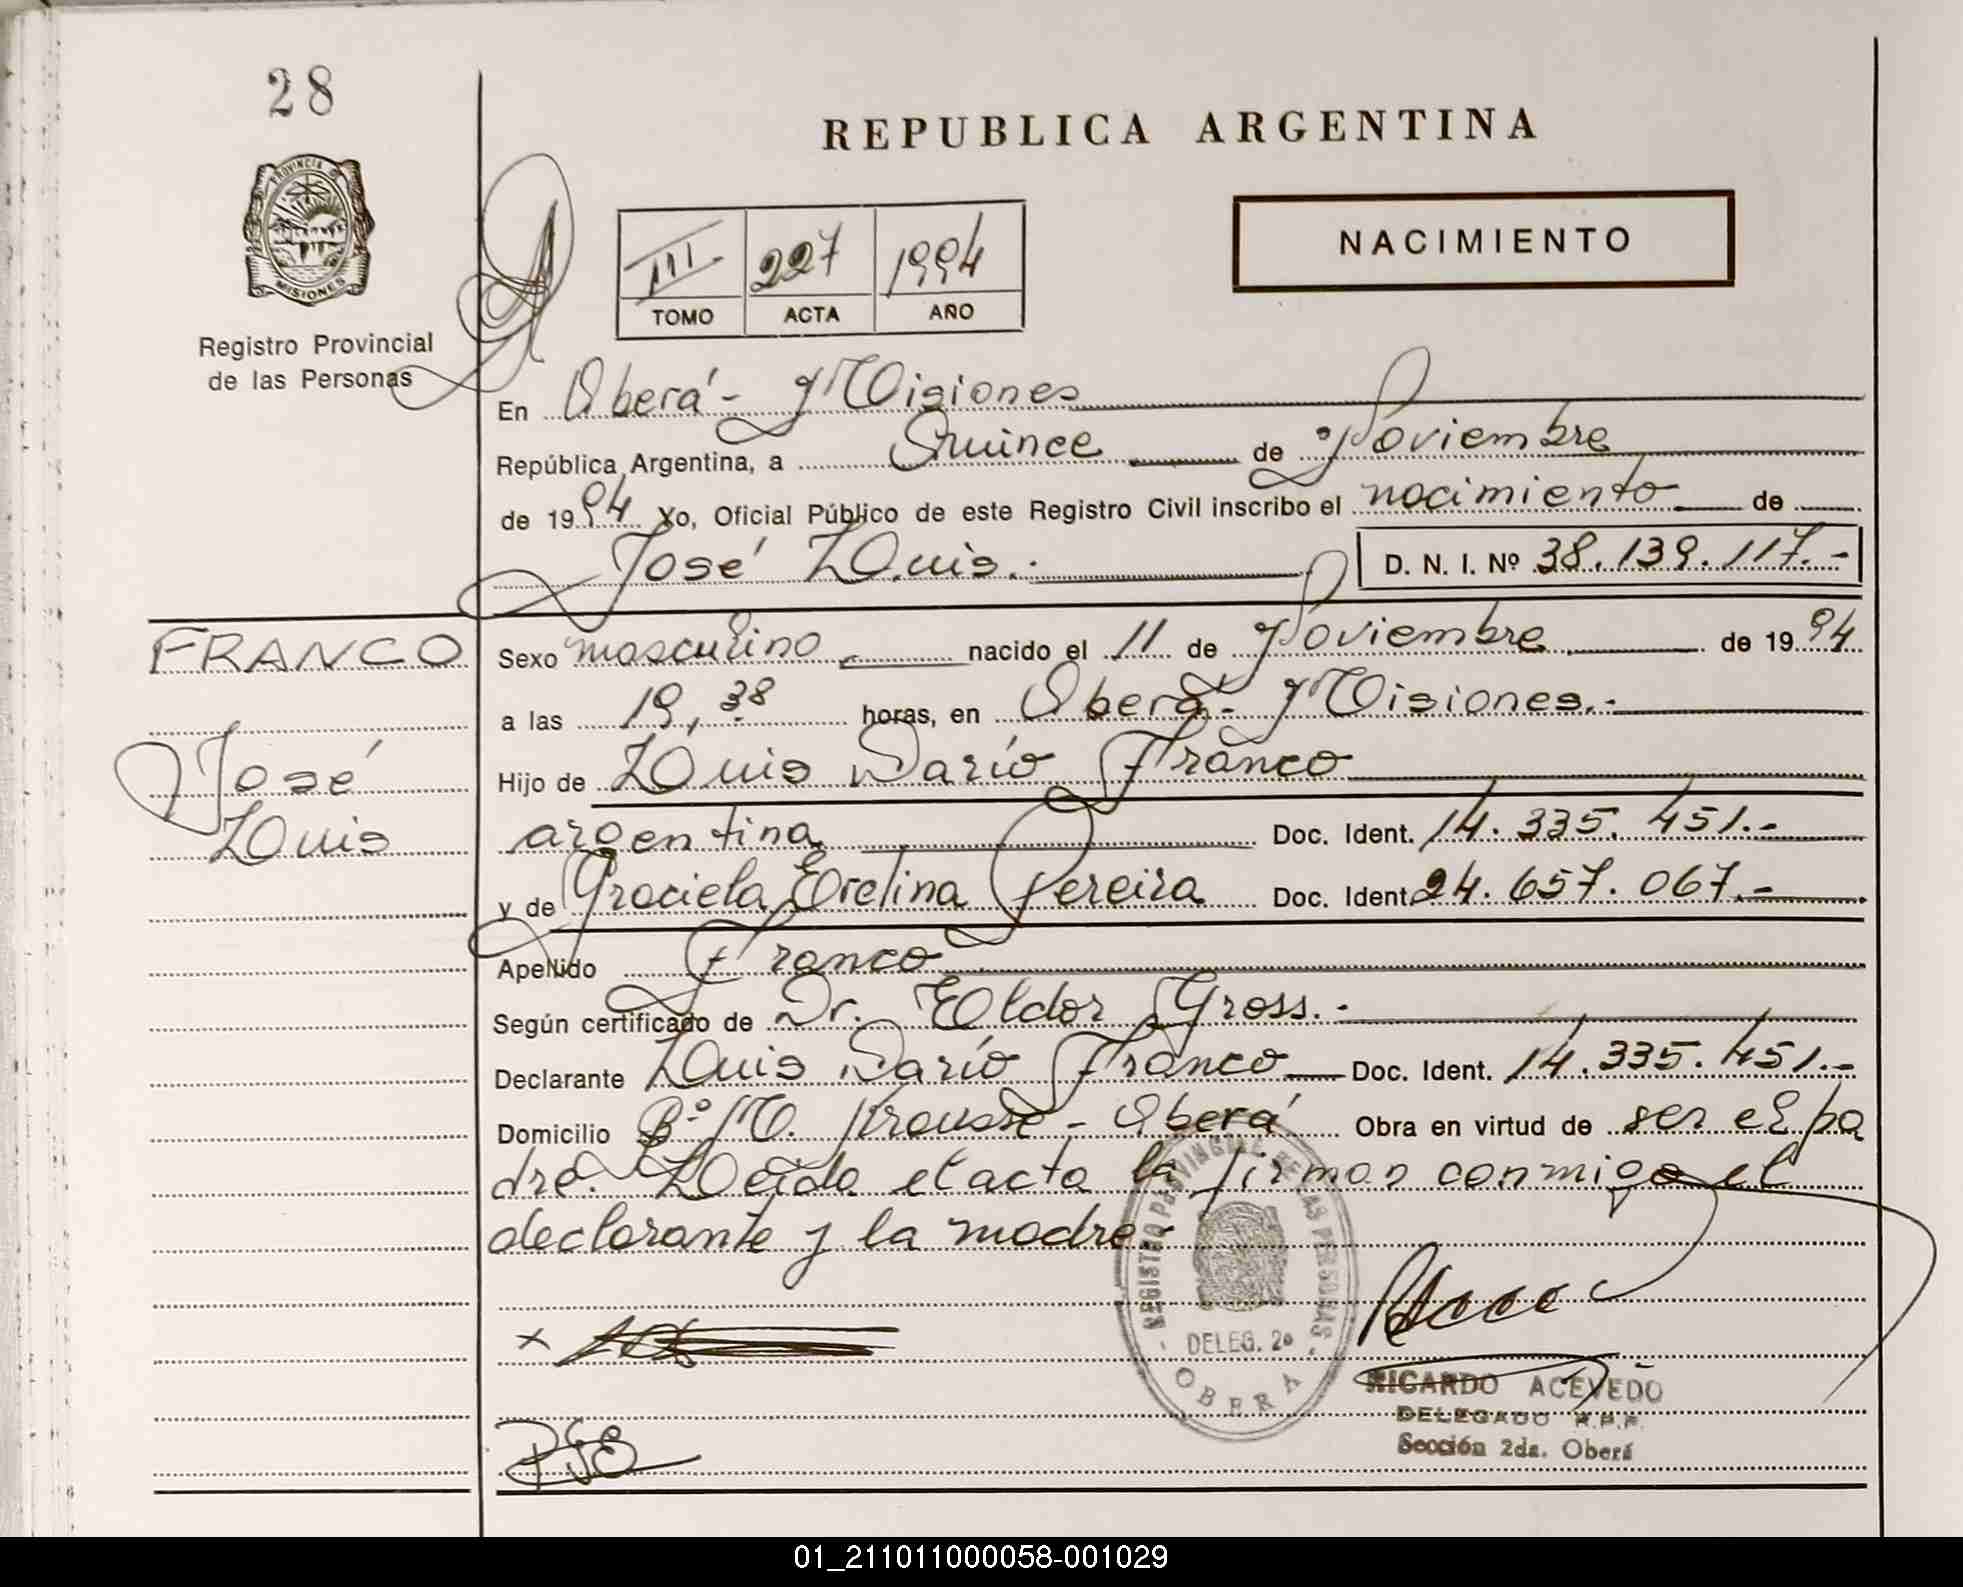 28
REPUBLICA ARGENTINA
PROVINCIA DE
MISIONES
Registro Provincial
de las Personas
III 227 1994
TOMO ACTA AÑO
NACIMIENTO
En Oberá - Misiones
República Argentina, a Quince de Noviembre
de 1994 Yo, Oficial Público de este Registro Civil inscribo el nacimiento de
José Luis.- D. N. I. Nº 38.139.117.-
FRANCO
José
Luis
Sexo masculino nacido el 11 de Noviembre de 1994
a las 19,38 horas, en Oberá - Misiones.-
Hijo de Luis Darío Franco
argentina Doc. Ident. 14.335.451.-
y de Graciela Evelina Pereira Doc. Ident. 24.657.067.-
Apellido Franco
Según certificado de Dr. Eldor Gross.-
Declarante Luis Darío Franco Doc. Ident. 14.335.451.-
Domicilio Bº M. Krausse - Oberá Obra en virtud de ser el pa
dre. Leída el acta la firman conmigo el
declarante y la madre.-
REGISTRO PROVINCIAL DE LAS PERSONAS
DELEG. 2º
OBERA
RICARDO ACEVEDO
DELEGADO R.P.P.
Sección 2da. Oberá
01_211011000058-001029